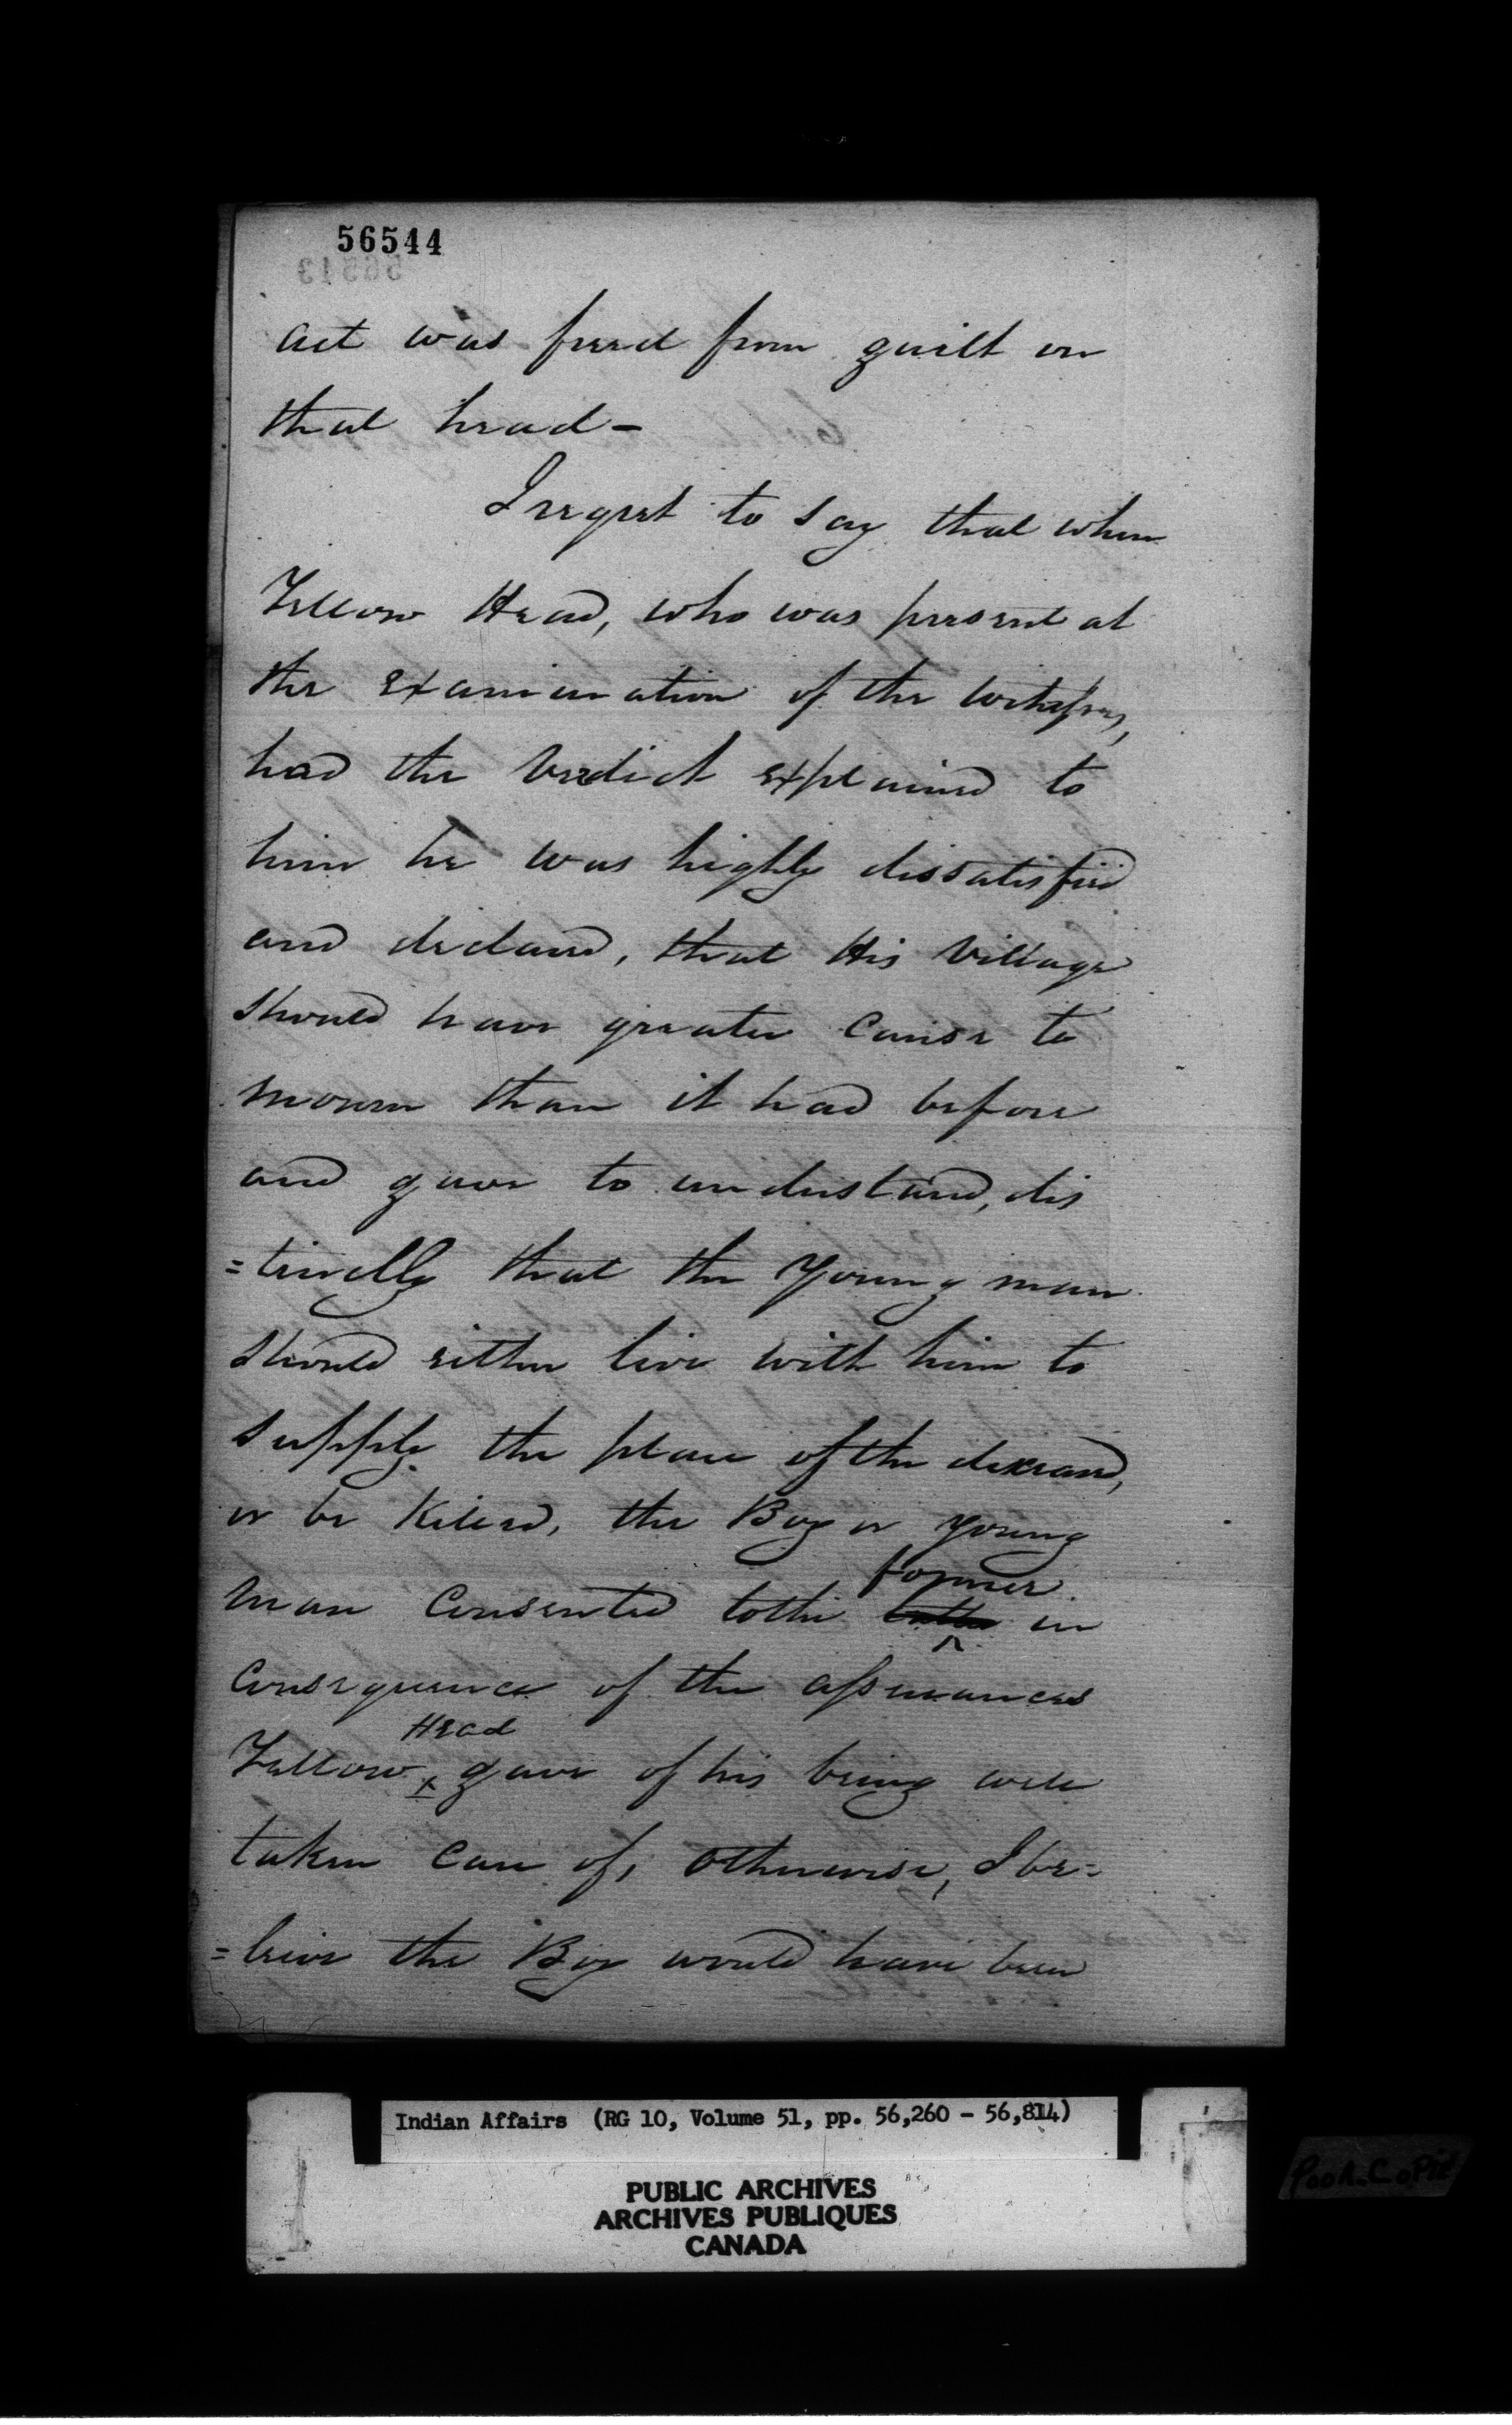 56544
act was freed from guilt on
that head -
I regret to say that when
Yellow Head, who was present at
the examination of the witnesses,
had the Verdict explained to
him he was highly dissatisfied
and declared, that His Village
should have greater Cause to
mourn than it had before
and gave to understand, dis
=tinctly that the Young man
should either live with him to
supply the place of the deceased,
or be Killed, the Boy or young
former
man Consented to the latter in
Consequence of the assurances
Head
Yellow x gave of his being well
taken care of, otherwise, I be=
=lieve the Boy would have been
Indian Affairs (RG 10, Volume 51, pp. 56,260 - 56,814)
PUBLIC ARCHIVES
ARCHIVES PUBLIQUES
CANADA